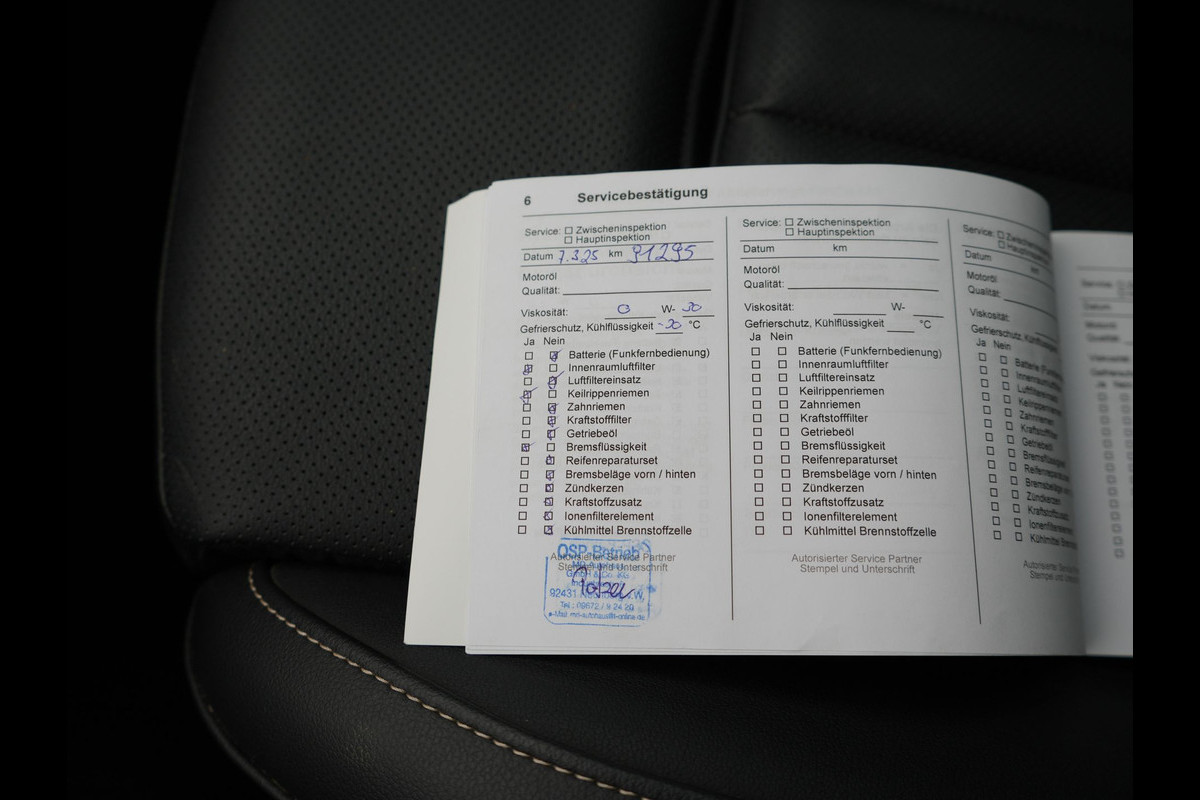 6 Servicebestätigung
Service: ☐ Zwischeninspektion
☐ Hauptinspektion
Datum 7.3.25 km 91295
Motoröl
Qualität:
Viskosität: 0 W- 30
Gefrierschutz, Kühlflüssigkeit -30 °C
Ja Nein
Batterie (Funkfernbedienung)
Innenraumluftfilter
Luftfiltereinsatz
Keilrippenriemen
Zahnriemen
Kraftstofffilter
Getriebeöl
Bremsflüssigkeit
Reifenreparaturset
Bremsbeläge vorn / hinten
Zündkerzen
Kraftstoffzusatz
Ionenfilterelement
Kühlmittel Brennstoffzelle
OSP-Betrieb
Autorisierter Service Partner
Stempel und Unterschrift
GmbH & Co. KG
92431
Tel.: 09672 / 9 24 20
Service: ☐ Zwischeninspektion
☐ Hauptinspektion
Datum km
Motoröl
Qualität:
Viskosität: W-
Gefrierschutz, Kühlflüssigkeit °C
Ja Nein
Batterie (Funkfernbedienung)
Innenraumluftfilter
Luftfiltereinsatz
Keilrippenriemen
Zahnriemen
Kraftstofffilter
Getriebeöl
Bremsflüssigkeit
Reifenreparaturset
Bremsbeläge vorn / hinten
Zündkerzen
Kraftstoffzusatz
Ionenfilterelement
Kühlmittel Brennstoffzelle
Autorisierter Service Partner
Stempel und Unterschrift
Service: ☐ Zwischeninspek
☐ Hauptinspektion
Datum km
Motoröl
Qualität:
Viskosität:
Gefrierschutz, Kühlflüssig
Ja Nein
Batterie (Funkfern
Innenraumluftfilter
Luftfiltereinsatz
Keilrippenriemen
Zahnriemen
Kraftstofffilter
Getriebeöl
Bremsflüssigkeit
Reifenreparaturset
Bremsbeläge vorn
Zündkerzen
Kraftstoffzusatz
Ionenfilterelement
Kühlmittel Brennst
Autorisierter Service
Stempel und Unterschr
Service:
Datum
Motoröl
Qualität:
Viskosität:
Gefrierschutz
Ja Nein